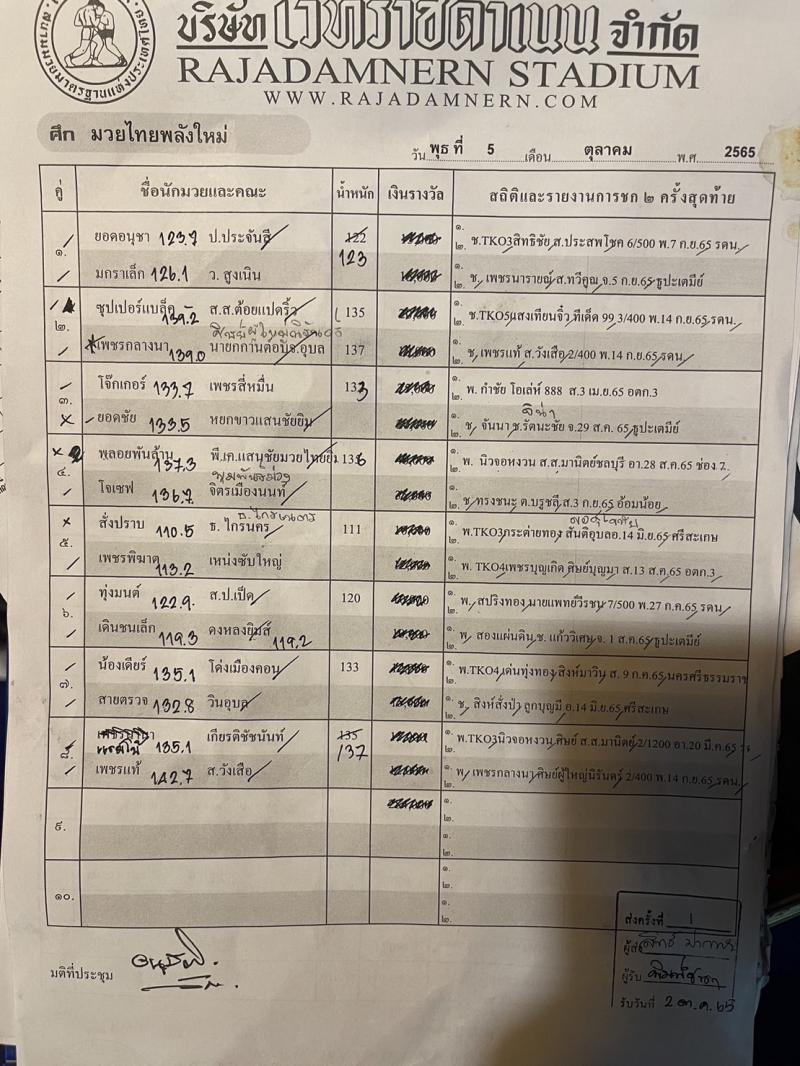 สนามมวยมาตรฐานแห่งประเทศไทย
บริษัท เวทีราชดำเนิน จำกัด
RAJADAMNERN STADIUM
WWW.RAJADAMNERN.COM
ศึก มวยไทยพลังใหม่
วัน พุธ ที่ 5 เดือน ตุลาคม พ.ศ 2565
คู่ ชื่อนักมวยและคณะ น้ำหนัก เงินรางวัล สถิติและรายงานการชก ๒ ครั้งสุดท้าย
๑.
ยอดอนุชา 123.7 ป.ประจันสี 122 123 ๑. ๒. ช.TKO3สิทธิชัย ส.ประสพโชค 6/500 พ.7 ก.ย.65 รดน.
มกราเล็ก 126.1 ว. สูงเนิน ๑. ๒. ช. เพชรนารายณ์ ส.ทวีคูณ จ.5 ก.ย.65 ธูปะเตมีย์
๒.
ซุปเปอร์แบล็ค 139.2 ส.ส.ต้อยแปดริ้ว 135 ๑. ๒. ช.TKO5แสงเทียนจิ๋ว ทีเด็ด 99 3/400 พ.14 ก.ย.65 รดน.
เพชรกลางนา 139.0 นายกก้านต่อบ้ธ.อุบล 137 ๑. ๒. ช. เพชรแท้ ส.วังเสือ 2/400 พ.14 ก.ย.65 รดน
๓.
โจ๊กเกอร์ 133.7 เพชรสี่หมื่น 133 ๑. ๒. พ. กำชัย โอเล่ห์ 888 ส.3 เม.ย.65 อตก.3
ยอดชัย 133.5 หยกขาวแสนชัยยิม ๑. ๒. ช. จันนา ช.รัตนะชัย จ.29 ส.ค. 65 ธูปะเตมีย์
๔.
พลอยพันล้าน 137.3 พี.เค.แสนชัยมวยไทยยิ่ม 136 ๑. ๒. พ. นิวจอหงวน ส.ส.มานิตย์ชลบุรี อา.28 ส.ค.65 ช่อง 7
โจเซฟ 136.7 จิตรเมืองนนท์ ๑. ๒. ช. ทรงชนะ ต.บรูซลี ส.3 ก.ย.65 อ้อมน้อย
๕.
สั่งปราบ 110.5 ธ. ไกรนคร 111 ๑. ๒. พ.TKO3กระต่ายทอง สันติอุบลอ.14 มิ.ย.65 ศรีสะเกษ
เพชรพิฆาต 113.2 เหน่งซับใหญ่ ๑. ๒. พ. TKO4เพชรบุญเกิด ศิษย์บุญมา ส.13 ส.ค.65 อตก.3
๖.
ทุ่งมนต์ 122.9. ส.ป.เป็ด 120 ๑. ๒. พ. สปริงทอง นายแพทย์วีรชน 7/500 พ.27 ก.ค.65 รดน
เดินชนเล็ก 119.3 ดงหลงยิมส์ 119.2 ๑. ๒. พ. สองแผ่นดิน ช. แก้ววิเศษ จ. 1 ส.ค.65 ธูปะเตมีย์
๗.
น้องเดียร์ 135.1 โด่งเมืองคอน 133 ๑. ๒. พ.TKO4 เด่นทุ่งทอง สิงห์มาวิน ส. 9 ก.ค.65 นครศรีธรรมราช
สายตรวจ 132.8 วินอุบล ๑. ๒. ช. สิงห์สั่งป่า ลูกบุญมี อ.14 มิ.ย.65 ศรีสะเกษ
๘.
135.1 เกียรติชัชนันท์ 135 137 ๑. ๒. พ.TKO3นิวจอหงวน ศิษย์ ส.ส.มานิตย์ 2/1200 อา.20 มี.ค.65
เพชรแท้ 142.7 ส.วังเสือ ๑. ๒. พ. เพชรกลางนา ศิษย์ผู้ใหญ่นิรันดร์ 2/400 พ.14 ก.ย.65 รดน.
๙. ๑. ๒. ๑. ๒.
๑๐. ๑. ๒. ๑. ๒.
มติที่ประชุม
ส่งครั้งที่ 1
ผู้ส่ง
ผู้รับ
รับวันที่ 2 ต.ค. 65